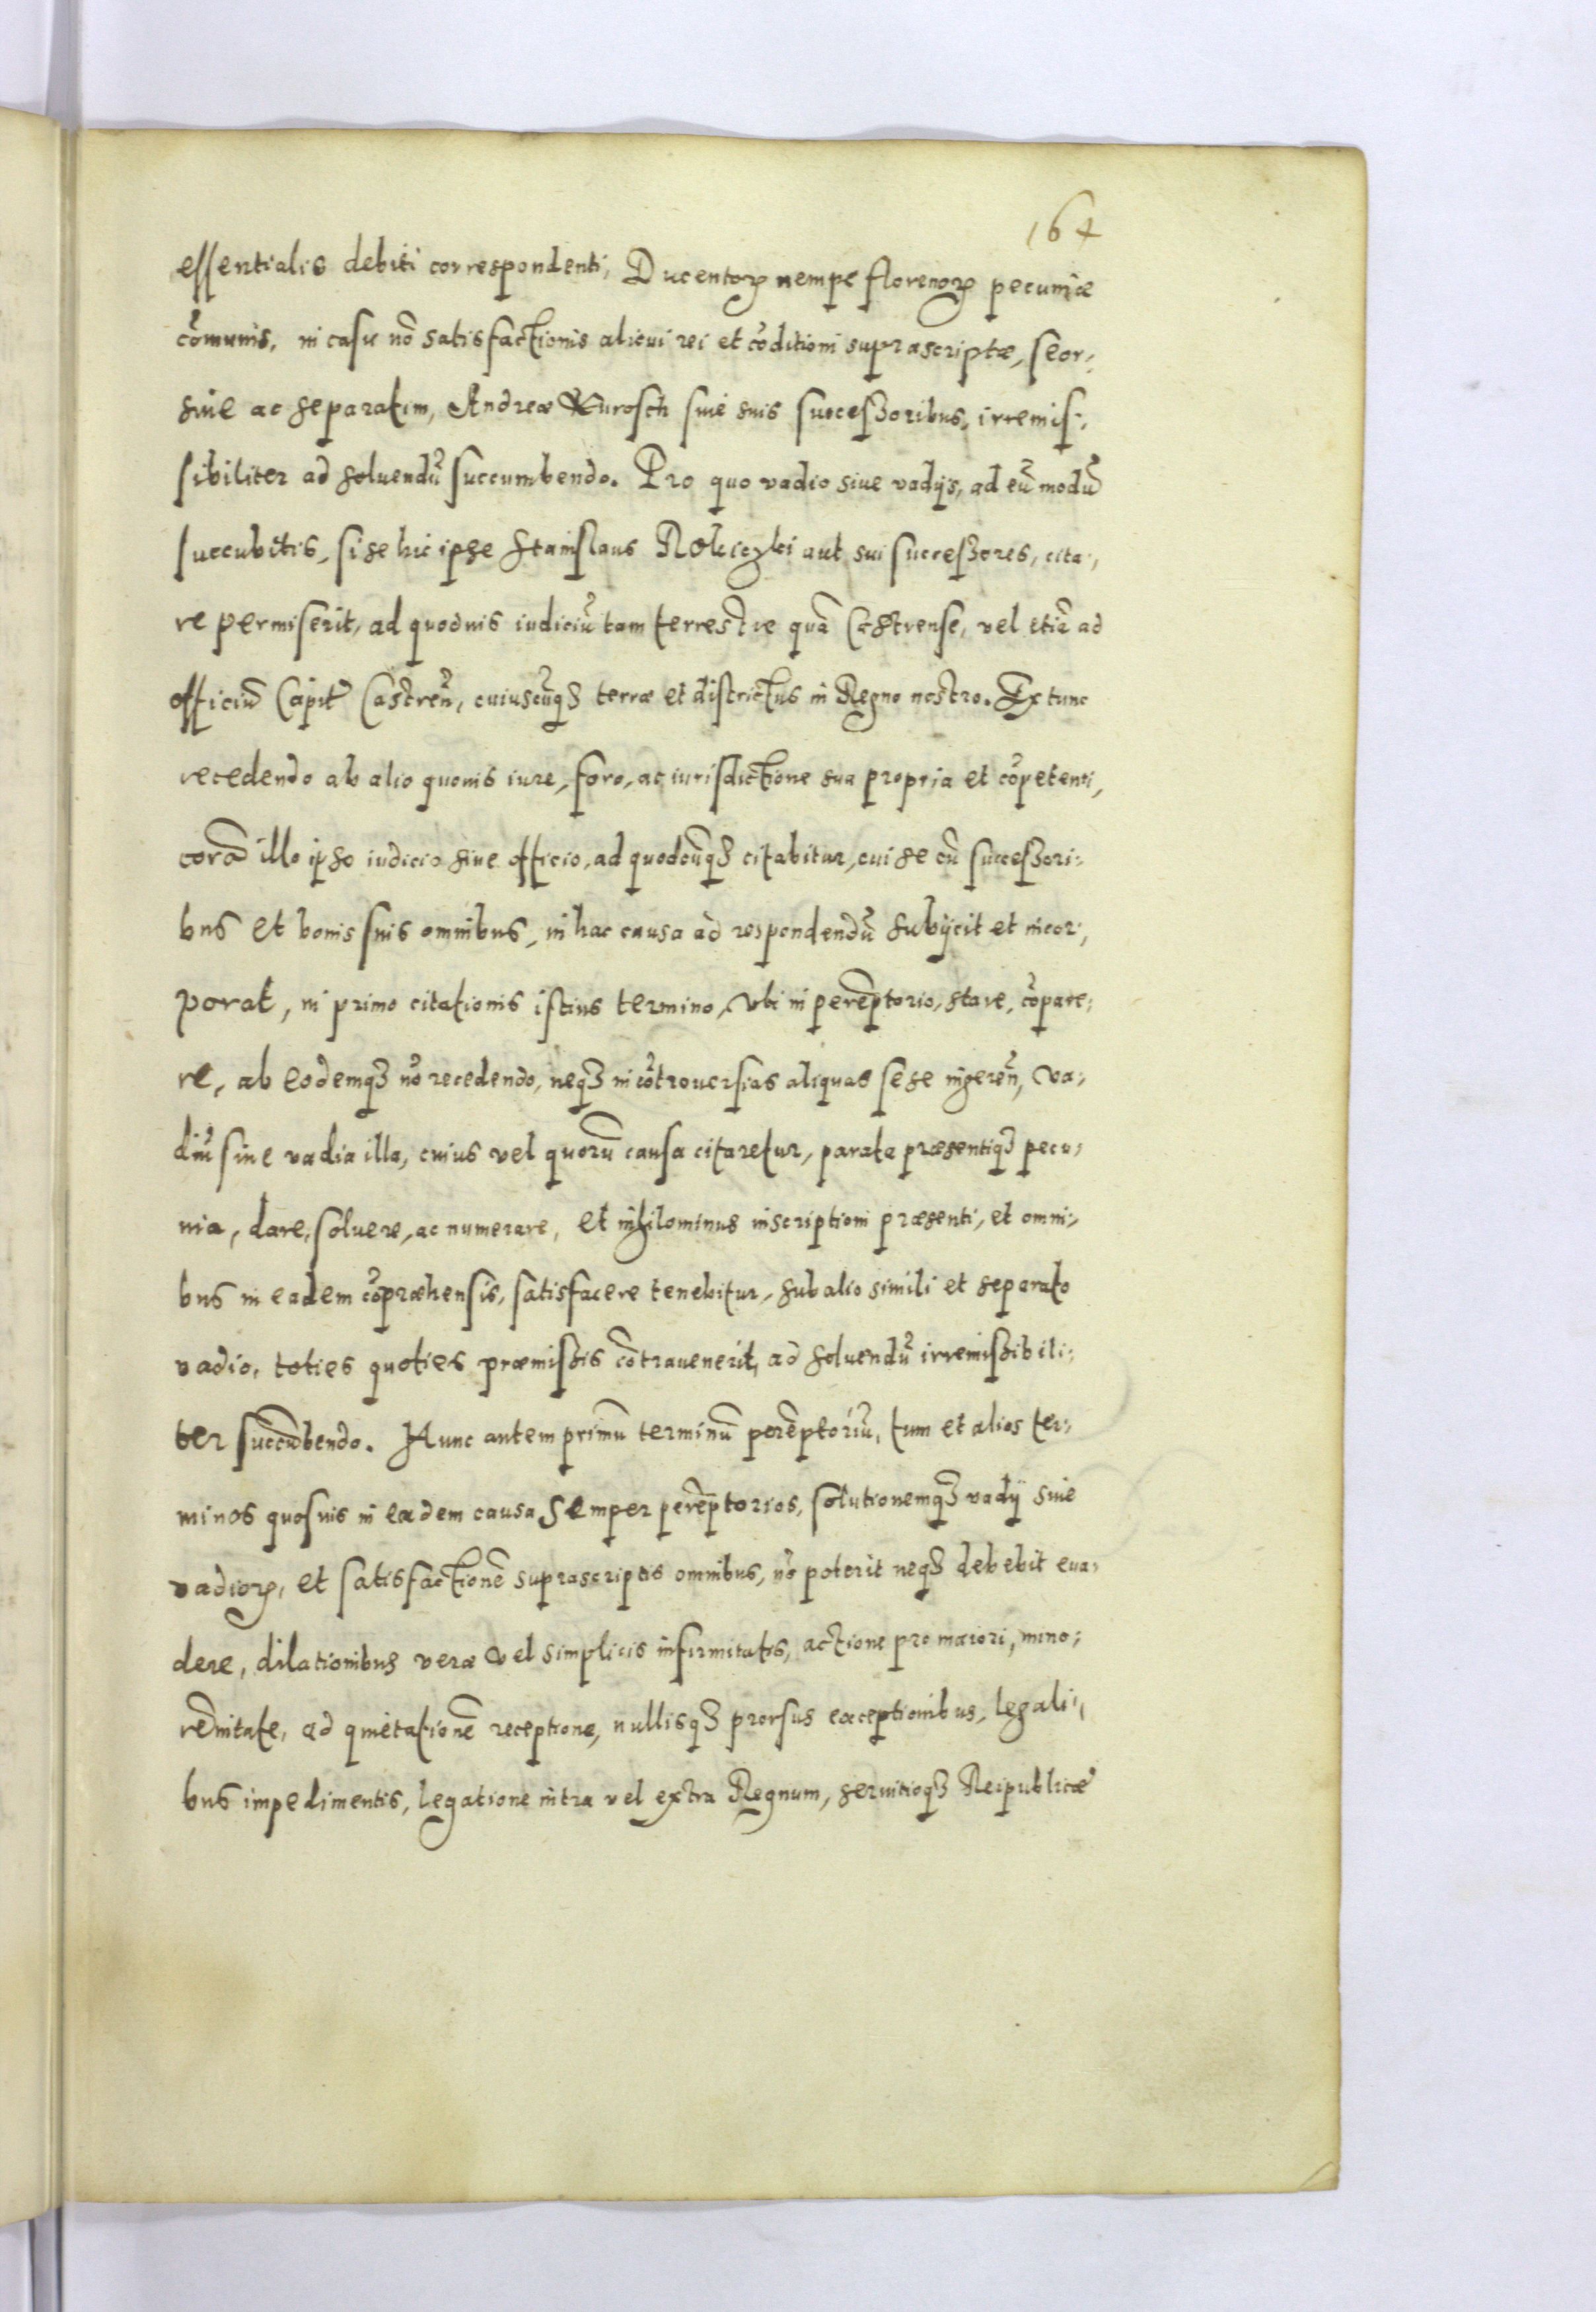 164
essentialis debiti correspondenti, Ducentoꝝ nempe florenoꝝ pecuniæ
cõmunis, in casu nõ satisfactionis alicui rei et cõditioni suprascriptæ, seor-
siue ac separatim, Andreæ Kurosch siue suis successoribus, irremis-
sibiliter ad soluendũ succumbendo. Pro quo vadio siue vadijs, ad eũ modũ
succubitis, si se hic ipse Stanislaus Rokiczki aut sui successores, cita-
re permiserit, ad quoduis iudiciũ tam terrestre quã Castrense, vel etiã ad
officiũ Capit̃ Castreñ, cuiuscũqꝫ terræ et districtus in Regno nostro. Ex tunc
recedendo ab alio quouis iure, foro, ac iurisdictione sua propria et cõpetenti,
corã illo ipso iudicio siue officio, ad quodcũqꝫ citabitur, cui se cũ successori-
bus et bonis suis omnibus, in hac causa ad respondendũ subijcit et incor-
porat, in primo citationis istius termino, vti in perẽptorio, stare, cõpare-
re, ab eodemqꝫ nõ recedendo, neqꝫ in cõtrouersias aliquas sese ingereñ, va-
diũ siue vadia illa, cuius vel quorũ causa citaretur, parata præsentiqꝫ pecu-
nia, dare, soluere, ac numerare, et nihilominus inscriptioni præsenti, et omni-
bus in eadem cõpræhensis, satisfacere tenebitur, sub alio simili et separato
vadio, toties quoties præmissis cõtrauenerit, ad soluendũ irremissibili-
ter succũbendo. Hunc autem primũ terminũ perẽptoriũ, tum et alios ter-
minos quosuis in eadem causa semper perẽptorios, solutionemqꝫ vadij siue
vadioꝝ, et satisfactionẽ suprascriptis omnibus, nõ poterit neqꝫ debebit eua-
dere, dilationibus veræ vel simplicis infirmitatis, actione pro maiori, mino-
re, ad quietationẽ receptione, nullisqꝫ prorsus exceptionibus, legali-
bus impedimentis, legatione intra vel extra Regnum, seruitioqꝫ Reipublicæ